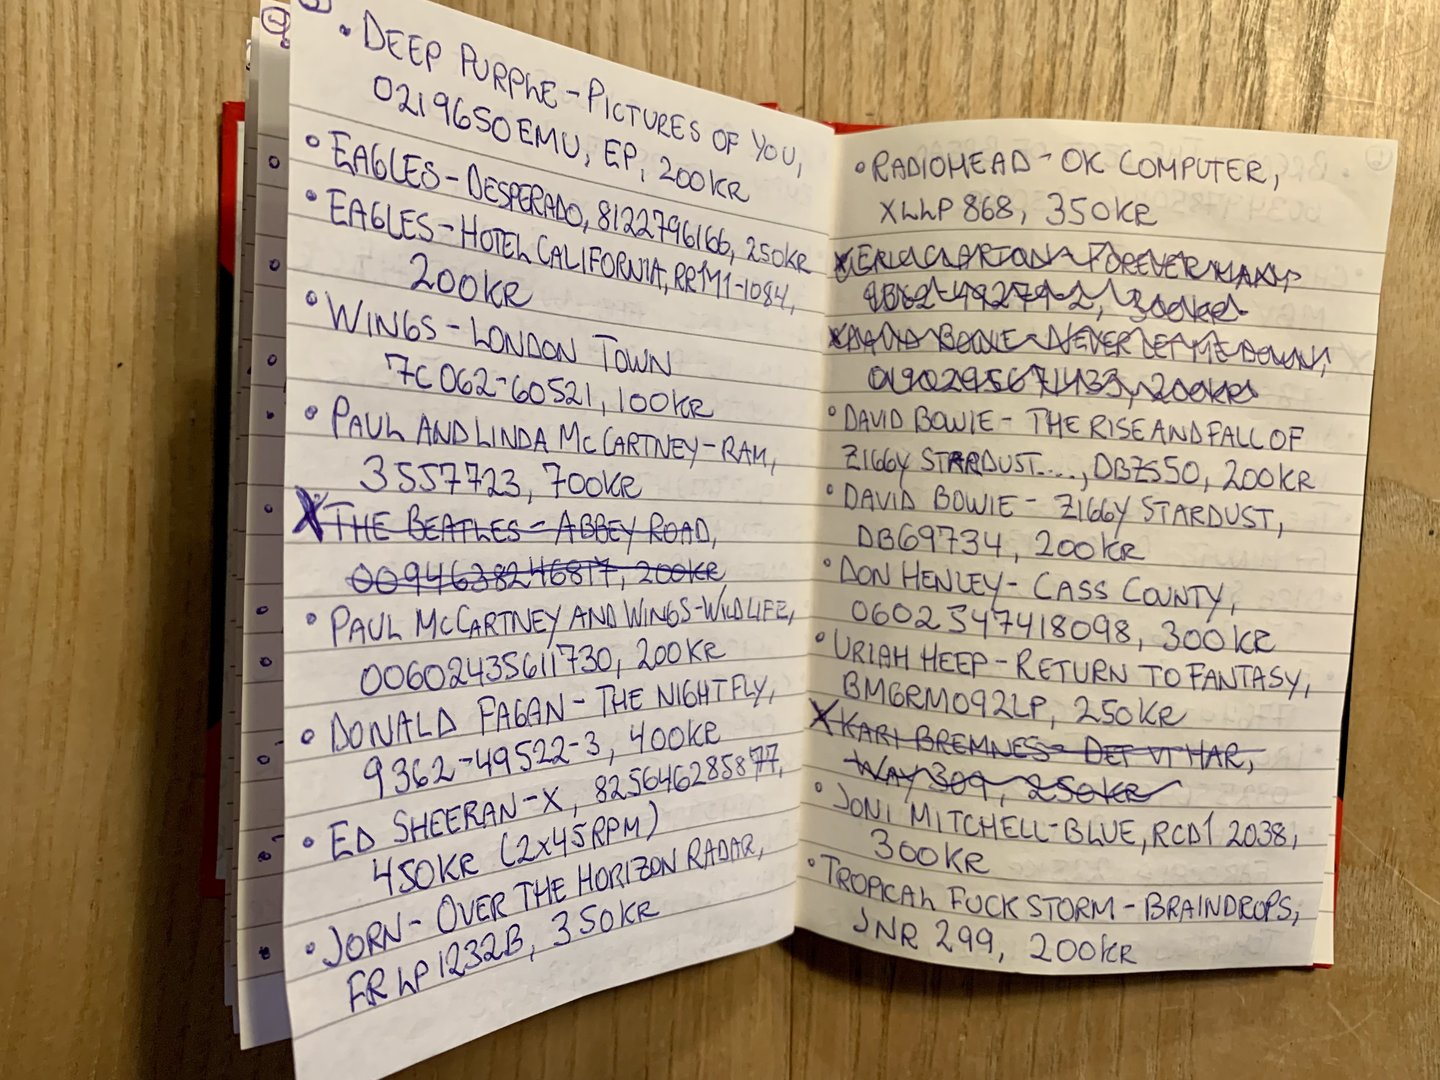 • DEEP PURPLE - PICTURES OF YOU,
0219650EMU, EP, 200KR
• EAGLES - DESPERADO, 8122796166, 250KR
• EAGLES - HOTEL CALIFORNIA, RRM1-1084,
200KR
• WINGS - LONDON TOWN
7C062-60521, 100KR
• PAUL AND LINDA McCARTNEY - RAM,
3557723, 700KR
X THE BEATLES - ABBEY ROAD,
0094638246817, 200KR
• PAUL McCARTNEY AND WINGS - WILDLIFE,
00602435611730, 200KR
• DONALD FAGAN - THE NIGHTFLY,
9362-49522-3, 400KR
• ED SHEERAN - X, 825646285877,
450KR (2x45RPM)
• JORN - OVER THE HORIZON RADAR,
FR LP 1232B, 350KR
• RADIOHEAD - OK COMPUTER,
XLLP 868, 350KR
X ERIC CLAPTON - FOREVER MAN,
9362-49279-2, 300KR
X DAVID BOWIE - NEVER LET ME DOWN,
0190295671433, 200KR
• DAVID BOWIE - THE RISE AND FALL OF
ZIGGY STARDUST...., DBZS50, 200KR
• DAVID BOWIE - ZIGGY STARDUST,
DB69734, 200KR
• DON HENLEY - CASS COUNTY,
0602547418098, 300KR
• URIAH HEEP - RETURN TO FANTASY,
BMGRM092LP, 250KR
X KARI BREMNES - DET VI HAR,
WAY 309, 250KR
• JONI MITCHELL - BLUE, RCD1 2038,
300KR
• TROPICAL FUCK STORM - BRAINDROPS,
JNR 299, 200KR